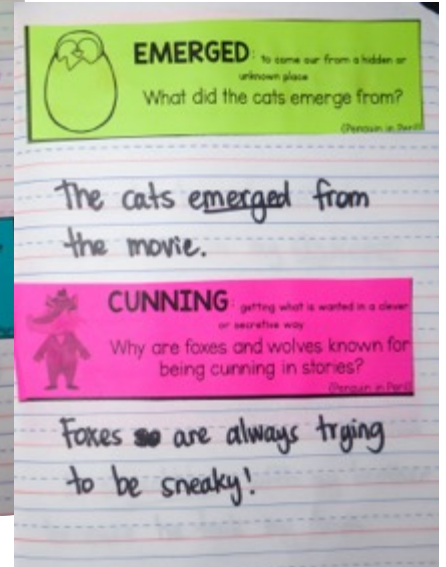 EMERGED: to come our from a hidden or
unknown place
What did the cats emerge from?
(Penguin in Peril)
The cats emerged from
the movie.
CUNNING: getting what is wanted in a clever
or secretive way
Why are foxes and wolves known for
being cunning in stories?
(Penguin in Peril)
Foxes are always trying
to be sneaky!